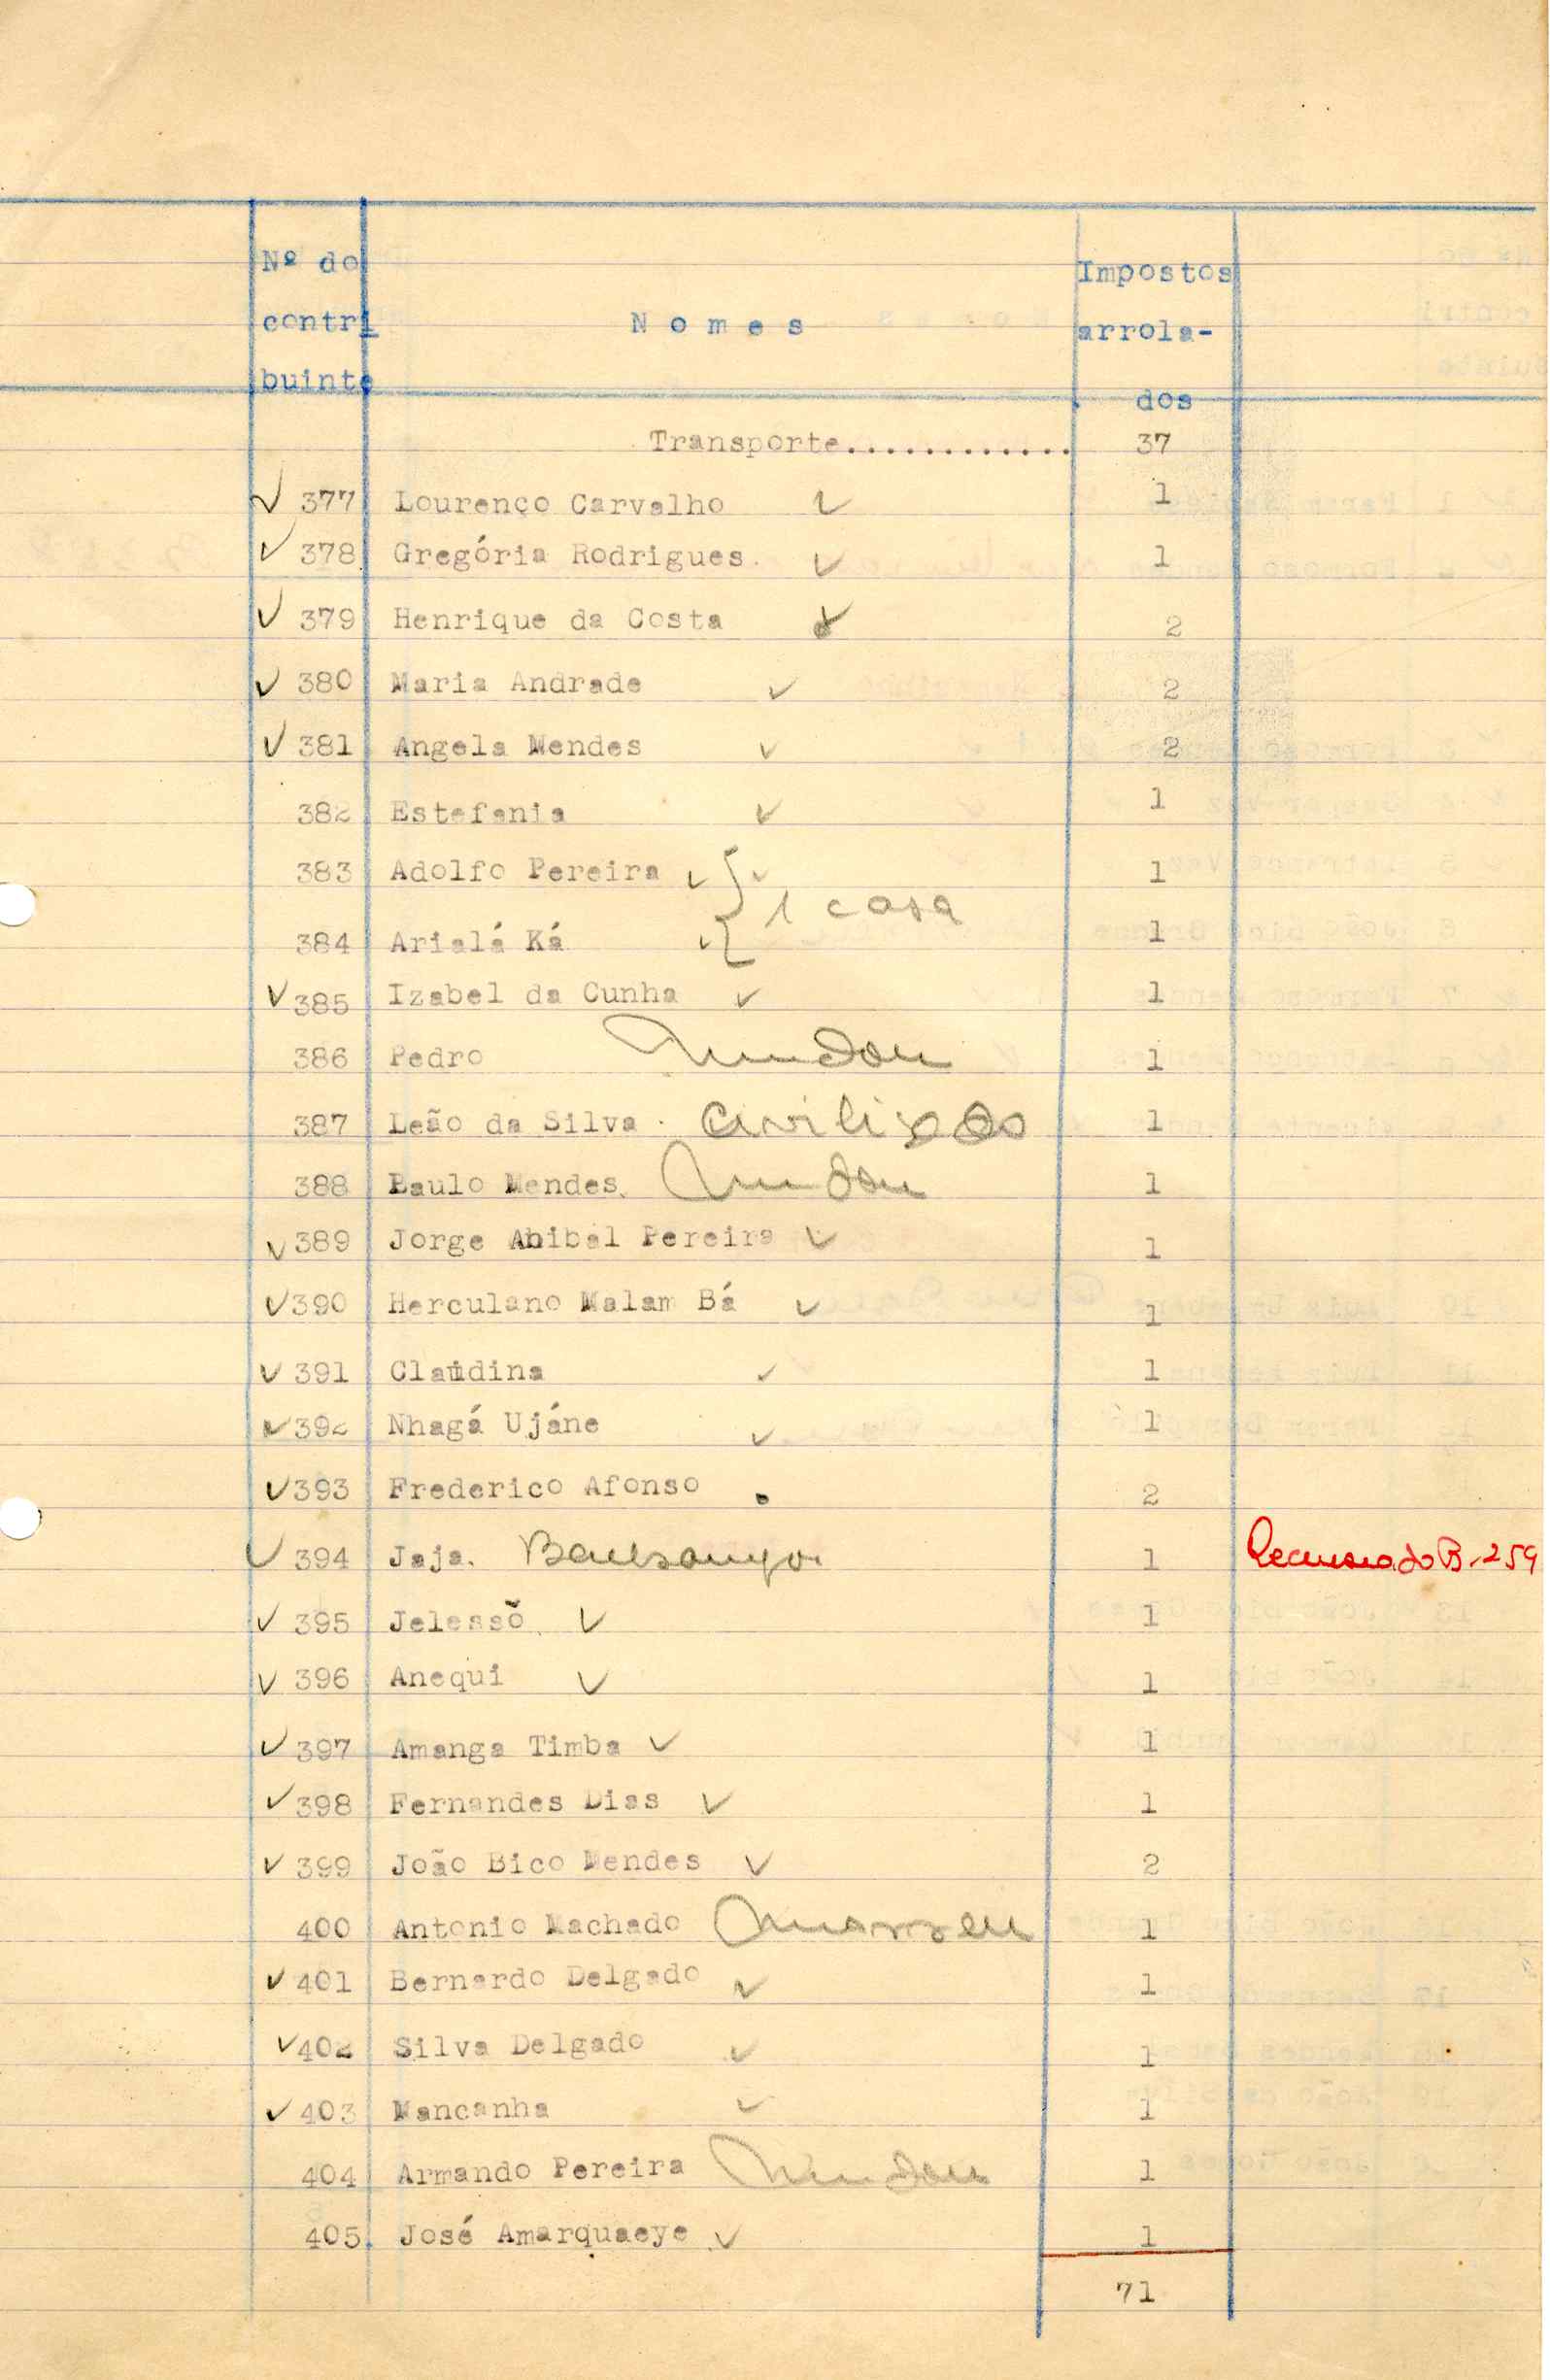 Nº do contri buinte
N o m e s
Impostos arrola- dos
Transporte............ 37
377 Lourenço Carvalho 1
378 Gregória Rodrigues. 1
379 Henrique da Costa 2
380 Maria Andrade 2
381 Angela Mendes 2
382 Estefania 1
383 Adolfo Pereira 1
1 casa
384 Arialá Ká 1
385 Izabel da Cunha 1
386 Pedro Mudou 1
387 Leão da Silva. Civilizado 1
388 Paulo Mendes. Mudou 1
389 Jorge Anibal Pereira 1
390 Herculano Malam Bá 1
391 Claudina 1
392 Nhagá Ujáne 1
393 Frederico Afonso 2
394 Jaja. 1 B-259
395 Jelessõ. 1
396 Anequi 1
397 Amanga Timba 1
398 Fernandes Dias 1
399 João Bico Mendes 2
400 Antonio Machado 1
401 Bernardo Delgado 1
402 Silva Delgado 1
403 Mancanha 1
404 Armando Pereira Mudou 1
405. José Amarquaeye 1
71